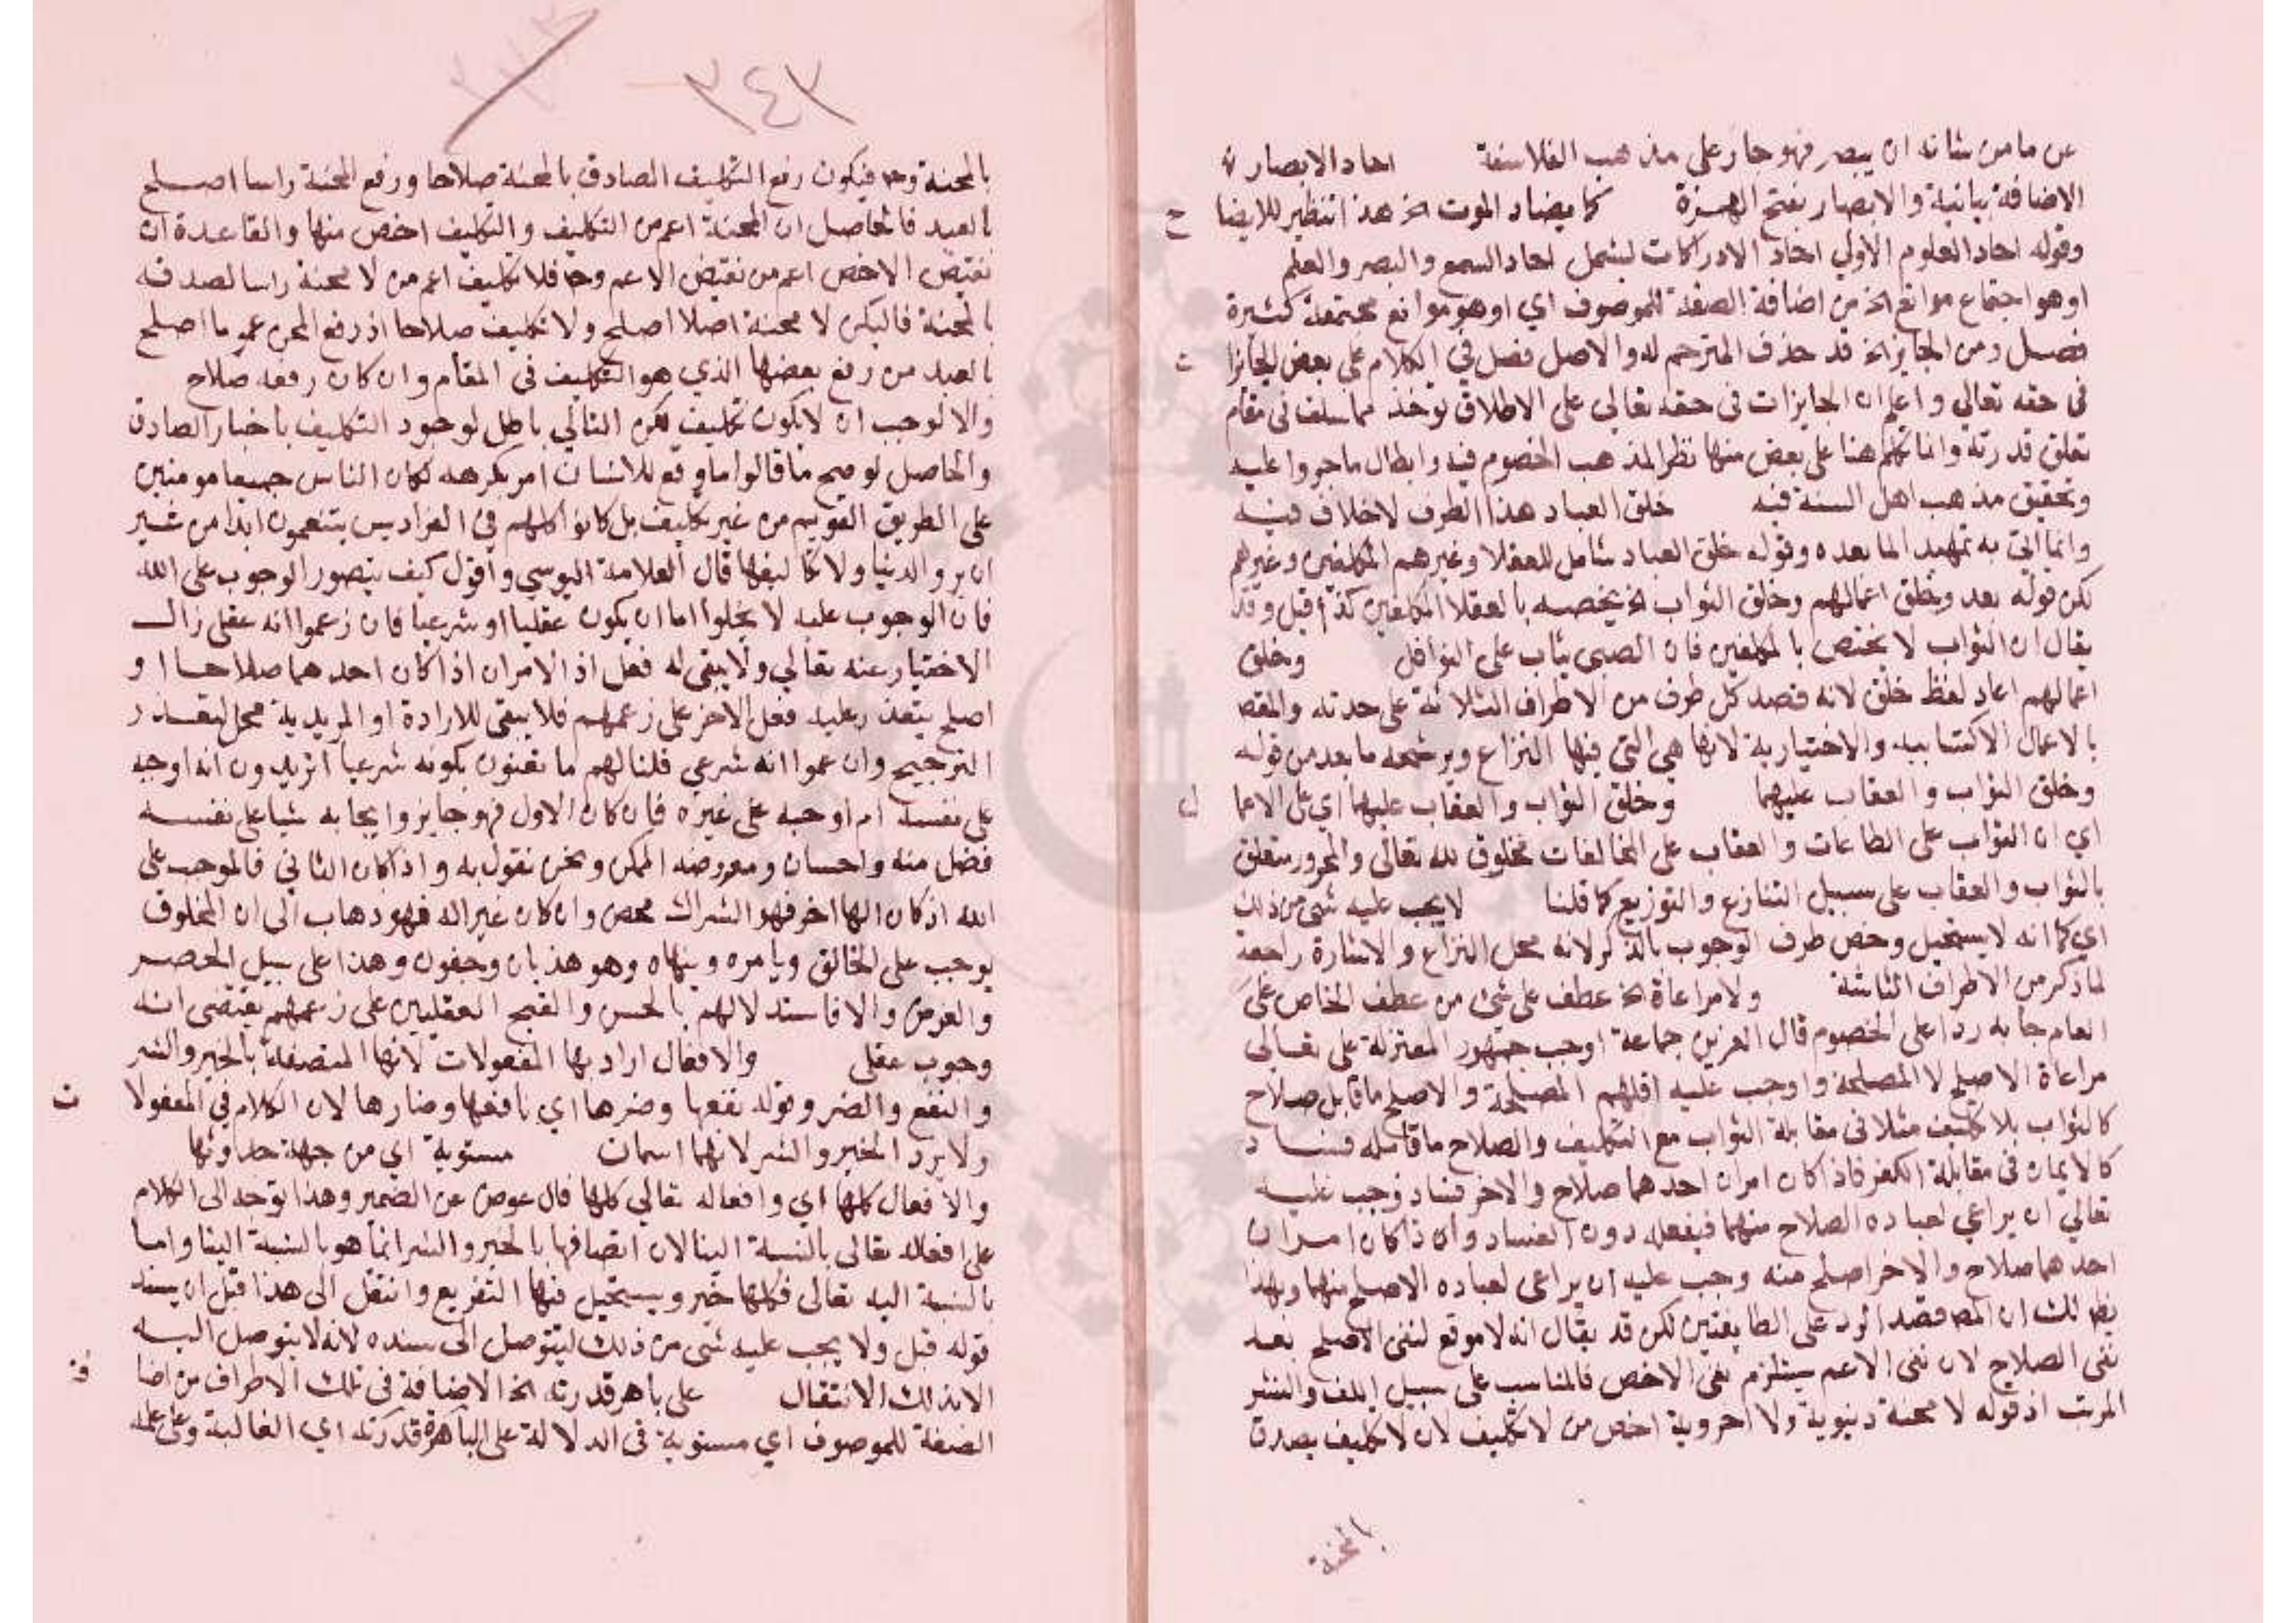 عن ما من شانه ان يبصر فهو جار على مذهب الفلاسفة احاد الابصار
الاضافة بيانية والابصار بفتح الهمزة كما يضاد الموت الخ هذا تنظير للايضا ح
وقوله احاد العلوم الاولي احاد الادراكات ليشمل احاد السمع والبصر والعلم
او هو اجتماع موانع الخ من اضافة الصفة للموصوف اي او هو موانع مجتمعة كثيرة
فصل ومن الجايز الخ قد حذف المترجم له والاصل فصل في الكلام على بعض الجايزا ت
في حقه تعالي واعلم ان الجايزات في حقه تعالي على الاطلاق توخذ مما سلف في مقام
تعلق قدرته وانما تكلم هنا على بعض منها نظرا لمذهب الخصوم فيه وابطال ما جروا عليه
وتحقيق مذهب اهل السنة فيه خلق العباد هذا الطرف لاخلاف فيه
وانما اتي به تمهيدا لما بعده وقوله خلق العباد شامل للعقلا وغيرهم المكلفين وغيرهم
لكن قوله بعد وخلق اعمالهم وخلق الثواب الخ يخصه بالعقلا المكلفين كذا قيل وقد
يقال ان الثواب لا يختص بالمكلفين فان الصبي يثاب على النوافل وخلق
اعمالهم اعاد لفظ خلق لانه قصد كل طرف من الاطراف الثلاثة على حدته والمقص
بالاعمال الاكتسابيه والاختيارية لانها هي التي فيها النزاع ويرشحه ما بعد من قوله
وخلق الثواب والعقاب عليهما وخلق الثواب والعقاب عليهما اي على الاعما ل
اي ان الثواب على الطاعات والعقاب على المخالفات مخلوق لله تعالى والمجرور متعلق
بالثواب والعقاب على سبيل التنازع والتوزيع كما قلنا لا يجب عليه شي من ذلك
اي كما انه لا يستحيل وخص طرف الوجوب بالذكر لانه محل النزاع والاشارة راجعة
لما ذكر من الاطراف الثلاثة ولا مراعاة الخ عطف على شي من عطف الخاص على
العام جا به ردا على الخصوم قال العزين جماعة اوجب جمهور المعتزلة على تعالى
مراعاة الاصلح لا المصلحة واوجب عليه اقلهم المصلحة والاصلح ما قابل صلاح
كالثواب بلا تكليف مثلا في مقابلة الثواب مع التكليف والصلاح ما قابله فسا د
كالايمان في مقابلة الكفر فاذا كان امران احدهما صلاح والاخر فساد وجب عليه
تعالي ان يراعي لعباده الصلاح منهما فيفعله دون الفساد وان ذا كان امران
احدهما صلاح والاخر اصلح منه وجب عليه ان يراعي لعباده الاصلح منهما وبهذا
يظ لك ان المص قصد الرد على الطايفتين لكن قد يقال انه لا موقع لنفي الاصلح بعد
نفي الصلاح لان نفي الاعم يستلزم نفي الاخص فالمناسب على سبيل اللف والنشر
المرتب اذ قوله لا محنة دينوية ولا اخروية اخص من لا تكليف لان لا تكليف يصدق
بالمحنة
٣٤٢
بالمحنة وح فيكون رفع التكليف الصادق بالمحنة صلاحا ورفع المحنة راسا اصلح
بالعبد فالحاصل ان المحنة اعم من التكليف والتكليف اخص منها والقاعدة ان
نقيض الاخص اعم من نقيض الاعم وح فلا تكليف اعم من لا محنة راسا لصدقه
بالمحنة فاليكن لا محنة اصلا اصلح ولا تكليف صلاحا اذ رفع المحن عموما اصلح
بالعبد من رفع بعضها الذي هو التكليف في المقام وان كان رفعه صلاح
والا لوجب ان لا يكون تكليف لكن التالي باطل لوجود التكليف باخبار الصادق
والحاصل لو صح ما قالوا ما وقع للانسان امر يكرهه لكان الناس جميعا مومنين
على الطريق القويم من غير تكليف بل كانوا كلهم في الفراديس يتنعمون ابدا من غير
ان يروا الدنيا ولا تكاليفها قال العلامة اليوسي واقول كيف يتصور الوجوب على الله
فان الوجوب عليه لا يخلوا اما ان يكون عقليا او شرعيا فان زعموا انه عقلي زال
الاختيار عنه تعالي ولا يبقى له فعل اذ الامران اذا كان احدهما صلاحا او
اصلح يتعذر عليه فعل الاخر على زعمهم فلا يبقى للارادة او المريدية محل لتعذر
الترجيح وان عموا انه شرعي قلنا لهم ما تعنون بكونه شرعيا اتريدون انه اوجبه
على نفسه ام اوجبه على غيره فان كان الاول فهو جايز وايجابه شيا على نفسه
فضل منه واحسان ومعروضه الممكن ونحن نقول به واذا كان الثاني فالموجب على
الله اذ كان الها اخر فهو الشراك محض وان كان غير اله فهو ذهاب الى ان المخلوق
يوجب على الخالق ويامره وينهاه وهو هذيان وجفون وهذا على سبيل الحصر
والعرض والا فاستدلالهم بالحسن والقبح العقليين على زعمهم يقتضي انه
وجوب عقلي والافعال اراد بها المفعولات لانها المتصفة بالخير والشر
والنفع والضر وقوله نفعها وضرها اي نافعها وضارها لان الكلام في المفعولا ت
ولا يرد الخير والشر لانهما اسمان مستوية اي من جهة حدوثها
والافعال كلها اي وافعاله تعالي كلها فال عوض عن الضمير وهذا توجه الى الكلام
على افعاله تعالى بالنسبة الينا لان اتصافها بالخير والشر انما هو بالنسبة الينا واما
بالنسبة اليه تعالى فكلها خير ويستحيل فيها التفريع وانتقل الى هذا قبل ان يسند
قوله قبل ولا يجب عليه شي من ذلك ليتوصل الى سنده لانه لا يتوصل اليه
الا بذلك الانتقال على باهر قدرته الخ الاضافة في تلك الاطراف من اضا فة
الصفة للموصوف اي مستوية في الدلالة على الباهرة قدرته اي الغالبة وعلى علمه